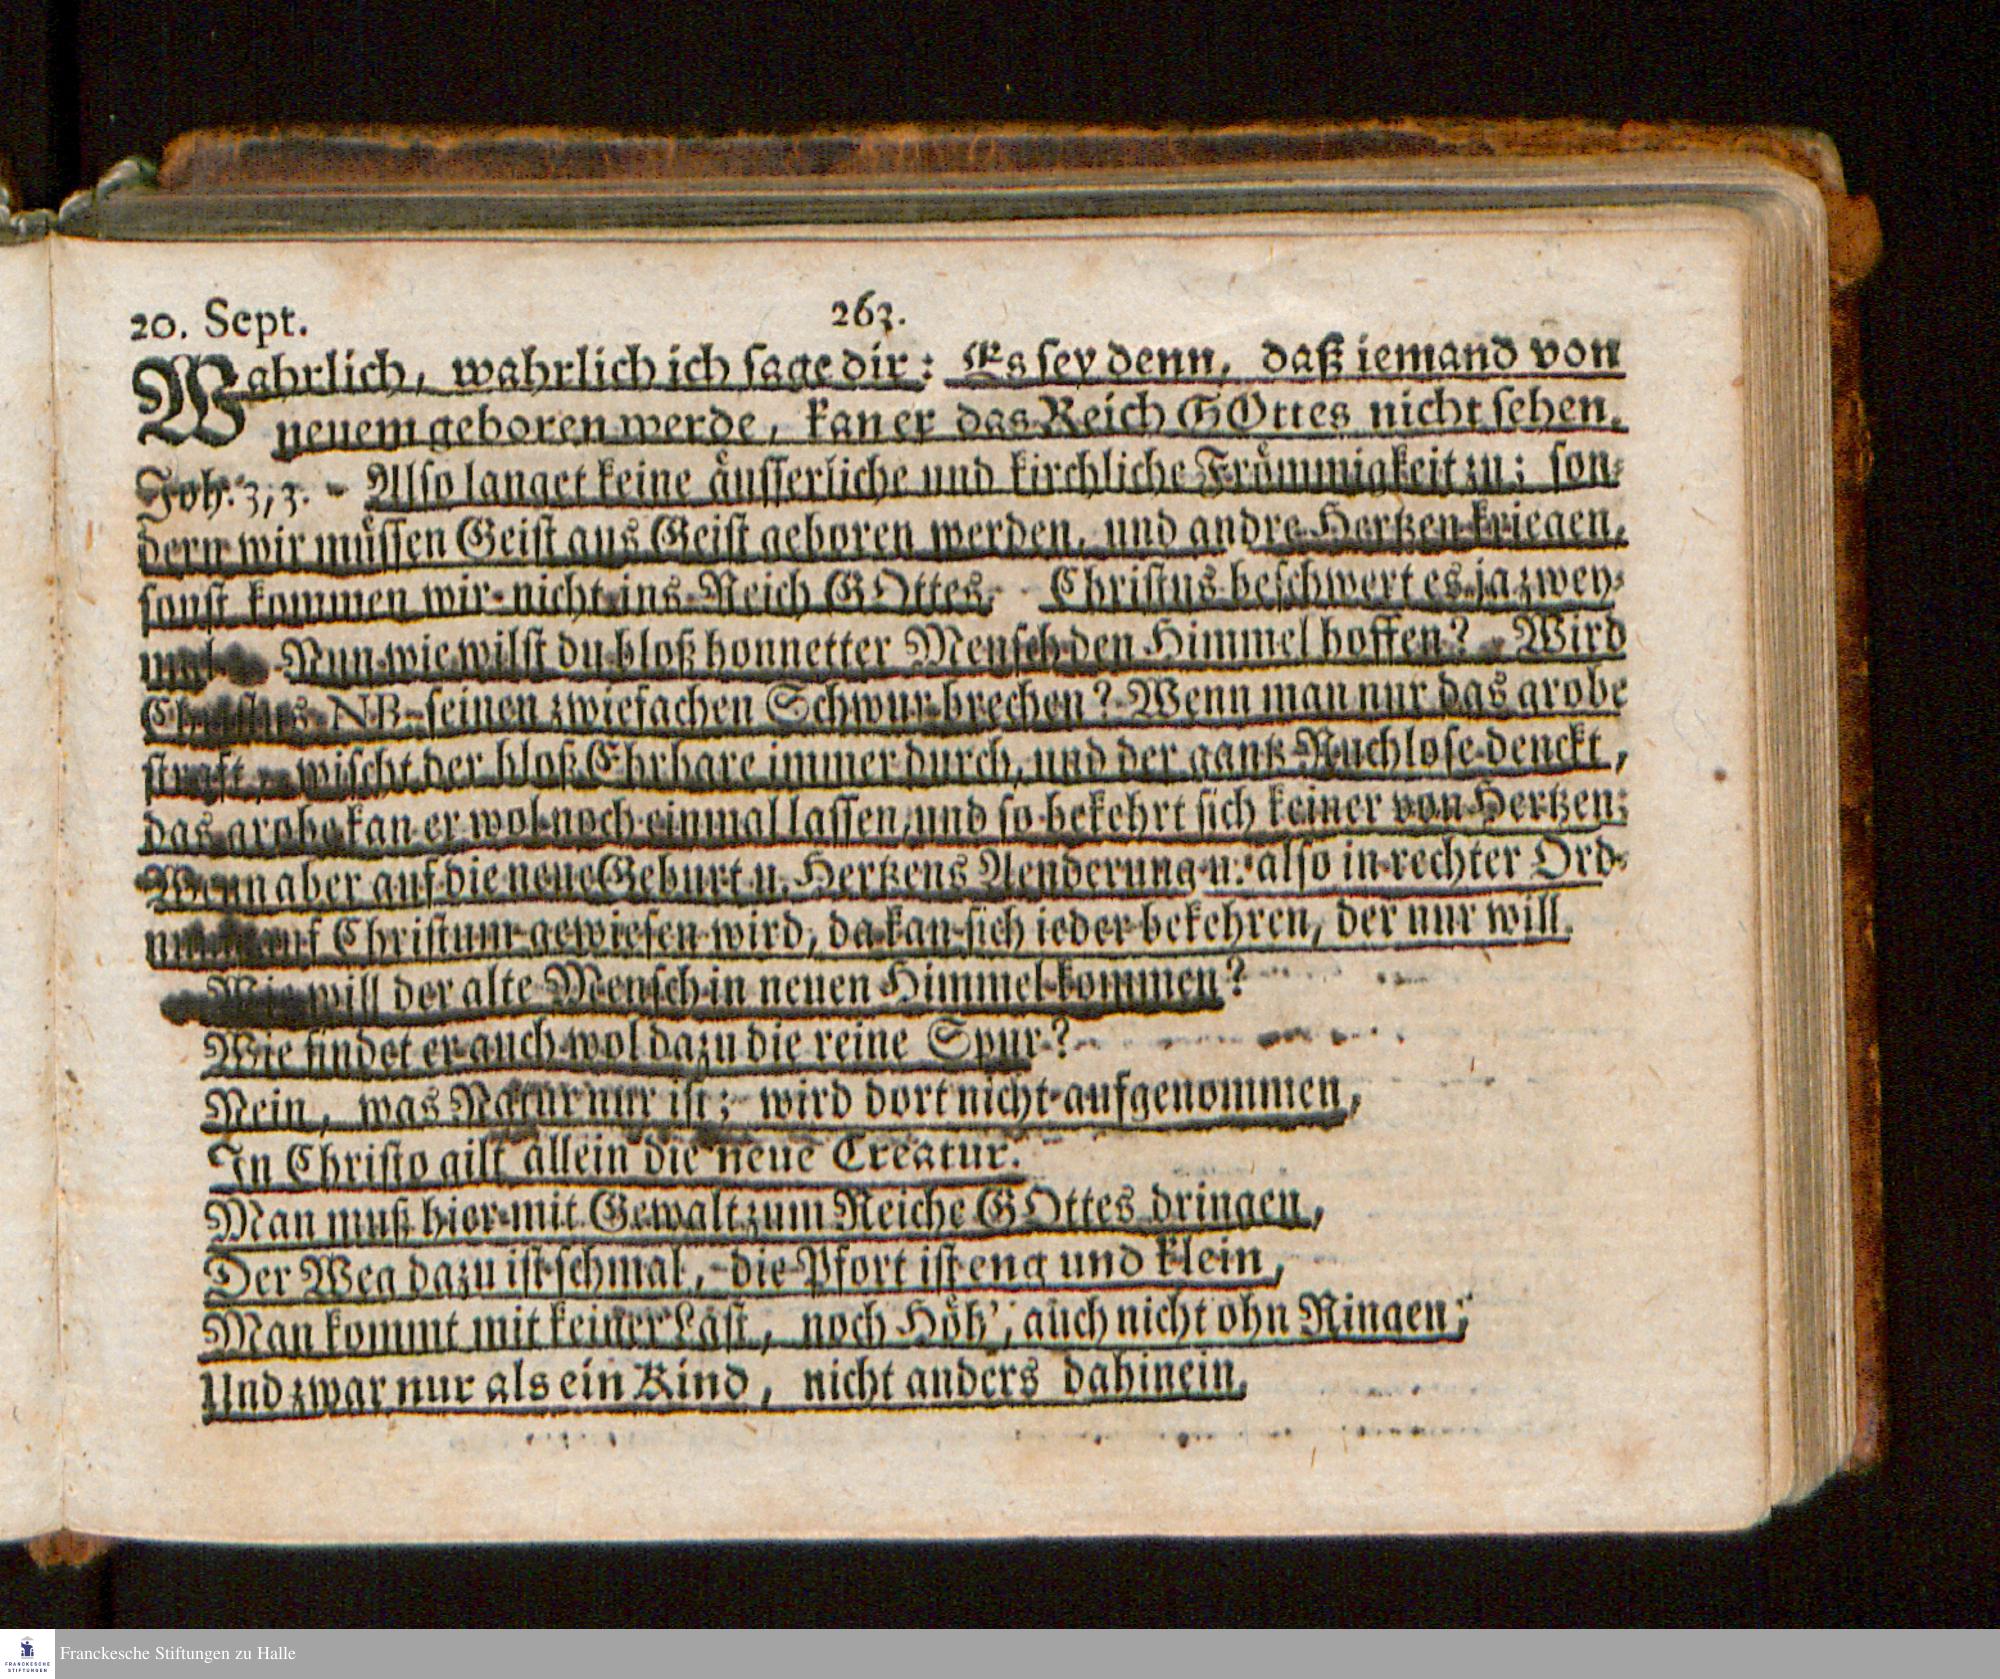 20. Sept. 263.
Wahrlich, wahrlich ich sage dir: Es sey denn, daß iemand von
neuem geboren werde, kan er das Reich GOttes nicht sehen.
Joh. 3, 3. - Also langet keine äusserliche und kirchliche Frömmigkeit zu; son-
dern wir müssen Geist aus Geist geboren werden, und andre Hertzen kriegen,
sonst kommen wir nicht ins Reich GOttes. Christus beschwert es ja zwey-
mal. Nun wie wilst du bloß honnetter Mensch den Himmel hoffen? Wird
Christus NB. seinen zwiefachen Schwur brechen? Wenn man nur das grobe
straft, wischt der bloß Ehrbare immer durch, und der gantz Ruchlose denckt,
das grobe kan er wol noch einmal lassen, und so bekehrt sich keiner von Hertzen;
Wenn aber auf die neue Geburt u. Hertzens Aenderung u. also in rechter Ord-
auf Christum gewiesen wird, da kan sich ieder bekehren, der nur will.
Wie will der alte Mensch in neuen Himmel kommen?
Wie findet er auch wol dazu die reine Spur?
Nein, was Natur nur ist; wird dort nicht aufgenommen,
In Christo gilt allein die neue Creatur.
Man muß hier mit Gewalt zum Reiche GOttes dringen,
Der Weg dazu ist schmal, die Pfort ist eng und klein,
Man kommt mit keiner Last, noch Höh', auch nicht ohn Ringen;
Und zwar nur als ein Kind, nicht anders dahinein.
FRANCKESCHE
STIFTUNGEN
Franckesche Stiftungen zu Halle